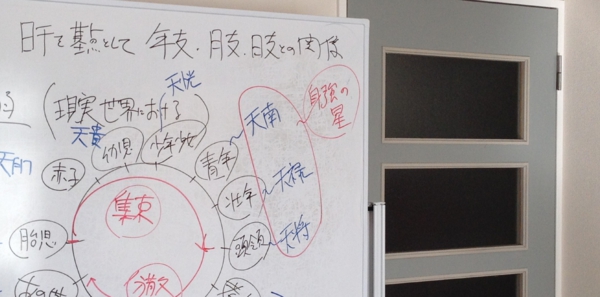 日干を基点として 年支・月支・日支との関係
(現実世界における)
天恍
天貴
幼児
少年少女
天南
身強の
星
青年
赤子
集束
壮年
天禄
胎児
頭領
天将